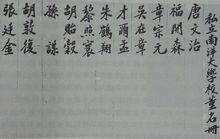 私立南洋大學校董名冊
唐文治
福開森
章宗元
吳在章
才爾孟
朱鶴翔
黎照寰
胡貽穀
孫謀
胡敦復
張廷金